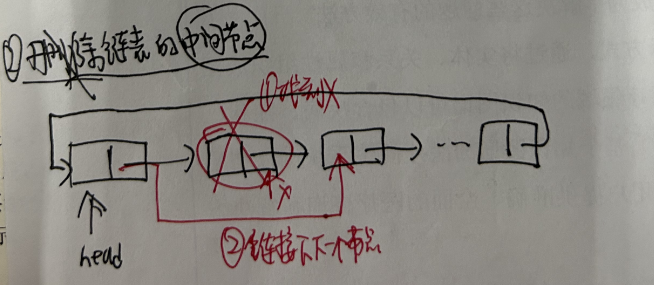 ② 删除链表的中间节点
①找到X
X
head
②链接下下一个节点